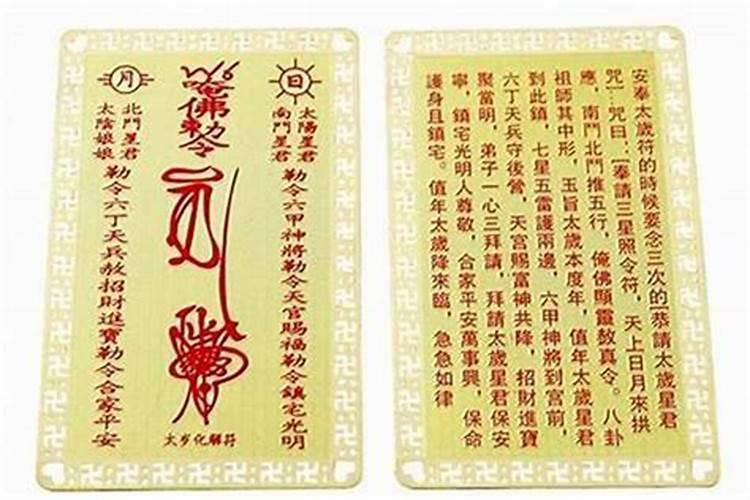 日
太陽星君
南鬥星君
勒令六甲神將勒令天官賜福勒令鎮宅光明
唵佛勅令
太岁化解符
月
北鬥星君
太陰娘娘
勒令六丁天兵敕招財進寶勒令合家平安
安奉太歲符的時候要念三次的[恭請太歲星君
咒]…咒曰:[奉請三星照令符,天上日月來拱
應,南鬥北鬥推五行,俺佛顯靈敖真令。八卦
祖師其中形,玉旨太歲本度年,值年太歲星君
到此鎮,七星五雷護兩邊,六甲神將到宫前,
六丁天兵守後營,天宫賜富神共降,招財進寶
聚當明,弟子一心三拜請,拜請太歲星君保安
寧,鎮宅光明人尊敬,合家平安萬事興,保命
護身且鎮宅。值年太歲降來臨,急急如律